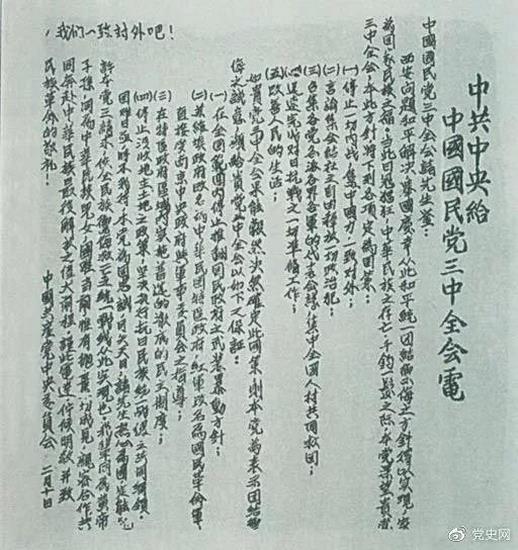 中共中央給
中國國民党三中全会電
中國國民党三中全会諸先生鑒：
西安問題和平解決，舉國慶幸，從此和平統一團結禦侮之方針得以實現，實
為國家民族之福。當此日寇猖狂，中華民族之存亡千鈞一髮之際，本党深望貴党
三中全会本此方針，將下列各項定為國策：
(一)停止一切內戰，集中國力，一致對外；
(二)言論集會結社之自由，釋放一切政治犯；
(三)召集各党各派各界各軍的代表会議，集中全國人材，共同救國；
(四)迅速完成對日抗戰之一切準備工作；
(五)改善人民的生活；
如貴党三中全会果能毅然決然確定此國策，則本党為表示團結禦
侮之誠意，願給貴党三中全会以如下之保証：
(一)在全國範圍內停止推翻國民政府之武裝暴動方針；
(二)蘇維埃政府改名為中華民國特區政府，紅軍改名為國民革命軍，
直接受南京中央政府與軍事委員会之指導；
(三)在特區政府區域內實施普選的徹底的民主制度；
(四)停止沒收地主土地之政策，堅決執行抗日民族統一戰線之共同綱領。
國難日亟，時不我待，本党為國忠誠，可矢天日，諸先生熱心為國，定能允
許本党之請求，使全民族禦侮救亡之統一戰線從此實現也。我輩同為黃帝
子孫，同為中華民族兒女，國難當前，惟有拋棄一切成見，親密合作，共
同奔赴中華民族最後解放之偉大前程。謹此電達，佇候明教，並致
民族革命的敬礼！
中國共產党中央委員会 二月十日
，我們一致對外吧！
党史网